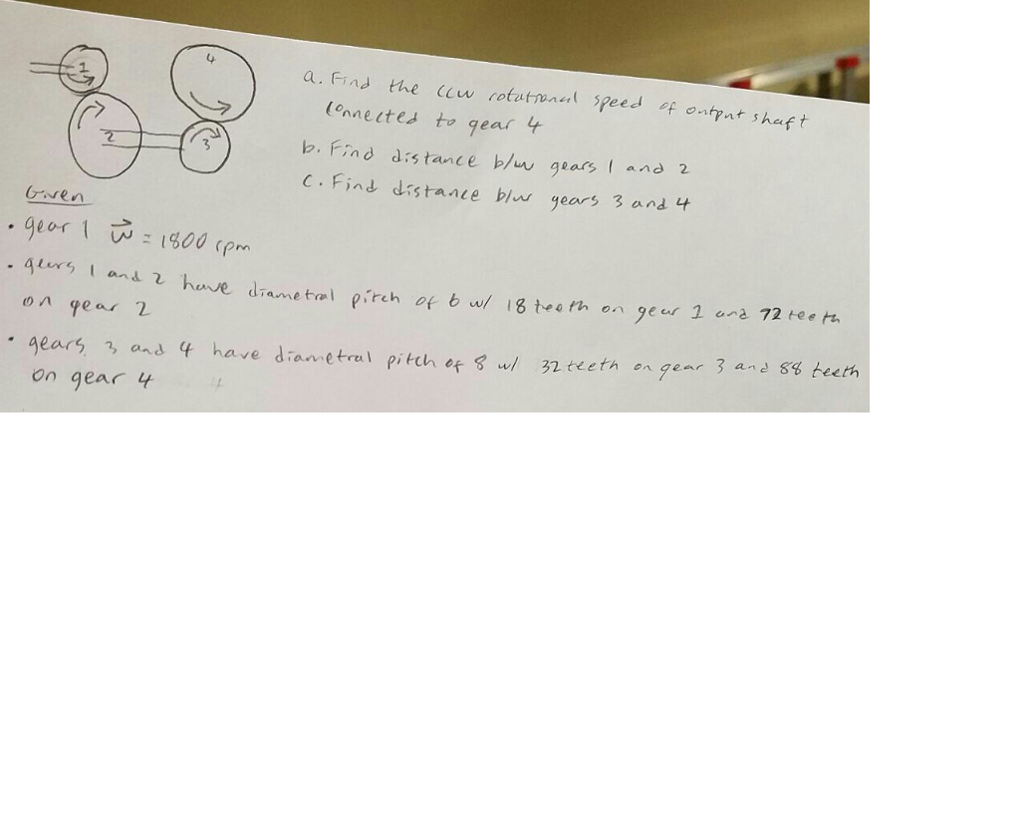 1
2
3
4
a. Find the ccw rotational speed of output shaft
connected to gear 4
b. Find distance b/w gears 1 and 2
c. Find distance b/w gears 3 and 4
Given
• gear 1 w⃗ = 1800 rpm
• gears 1 and 2 have diametral pitch of 6 w/ 18 teeth on gear 1 and 72 teeth
on gear 2
• gears 3 and 4 have diametral pitch of 8 w/ 32 teeth on gear 3 and 88 teeth
on gear 4